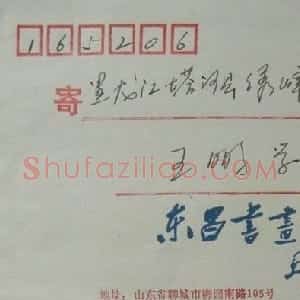 165206
寄 黑龙江塔河县
王鹏学
Shufaziliao.com
东昌书画
地址:山东省聊城市梅园南路195号